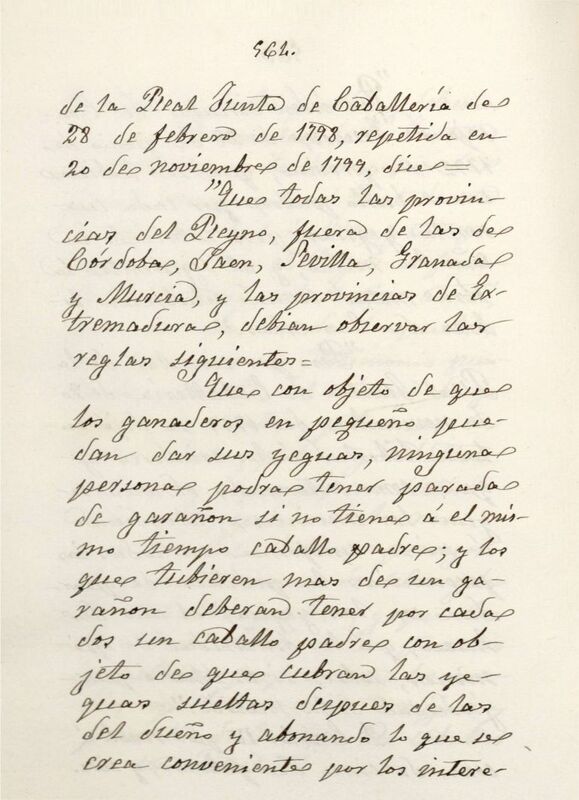 564.
de la Real Junta de Caballería de
28 de febrero de 1798, repetida en
20 de noviembre de 1799, dice=
"Que todas las provin-
cias del Reyno, fuera de las de
Córdoba, Jaen, Sevilla, Granada
y Murcia, y las provincias de Ex-
tremadura, debian observar las
reglas siguientes=
Que con objeto de que
los ganaderos en pequeño pue-
dan dar sus yeguas, ninguna
persona podra tener parada
de garañon si no tiene á el mis-
mo tiempo caballo padre; y los
que tubieren mas de un ga-
rañon deberan tener por cada
dos un caballo padre con ob-
jeto de que cubran las ye-
guas sueltas depues de las
del dueño y abonando lo que se
crea conveniente por los intere-